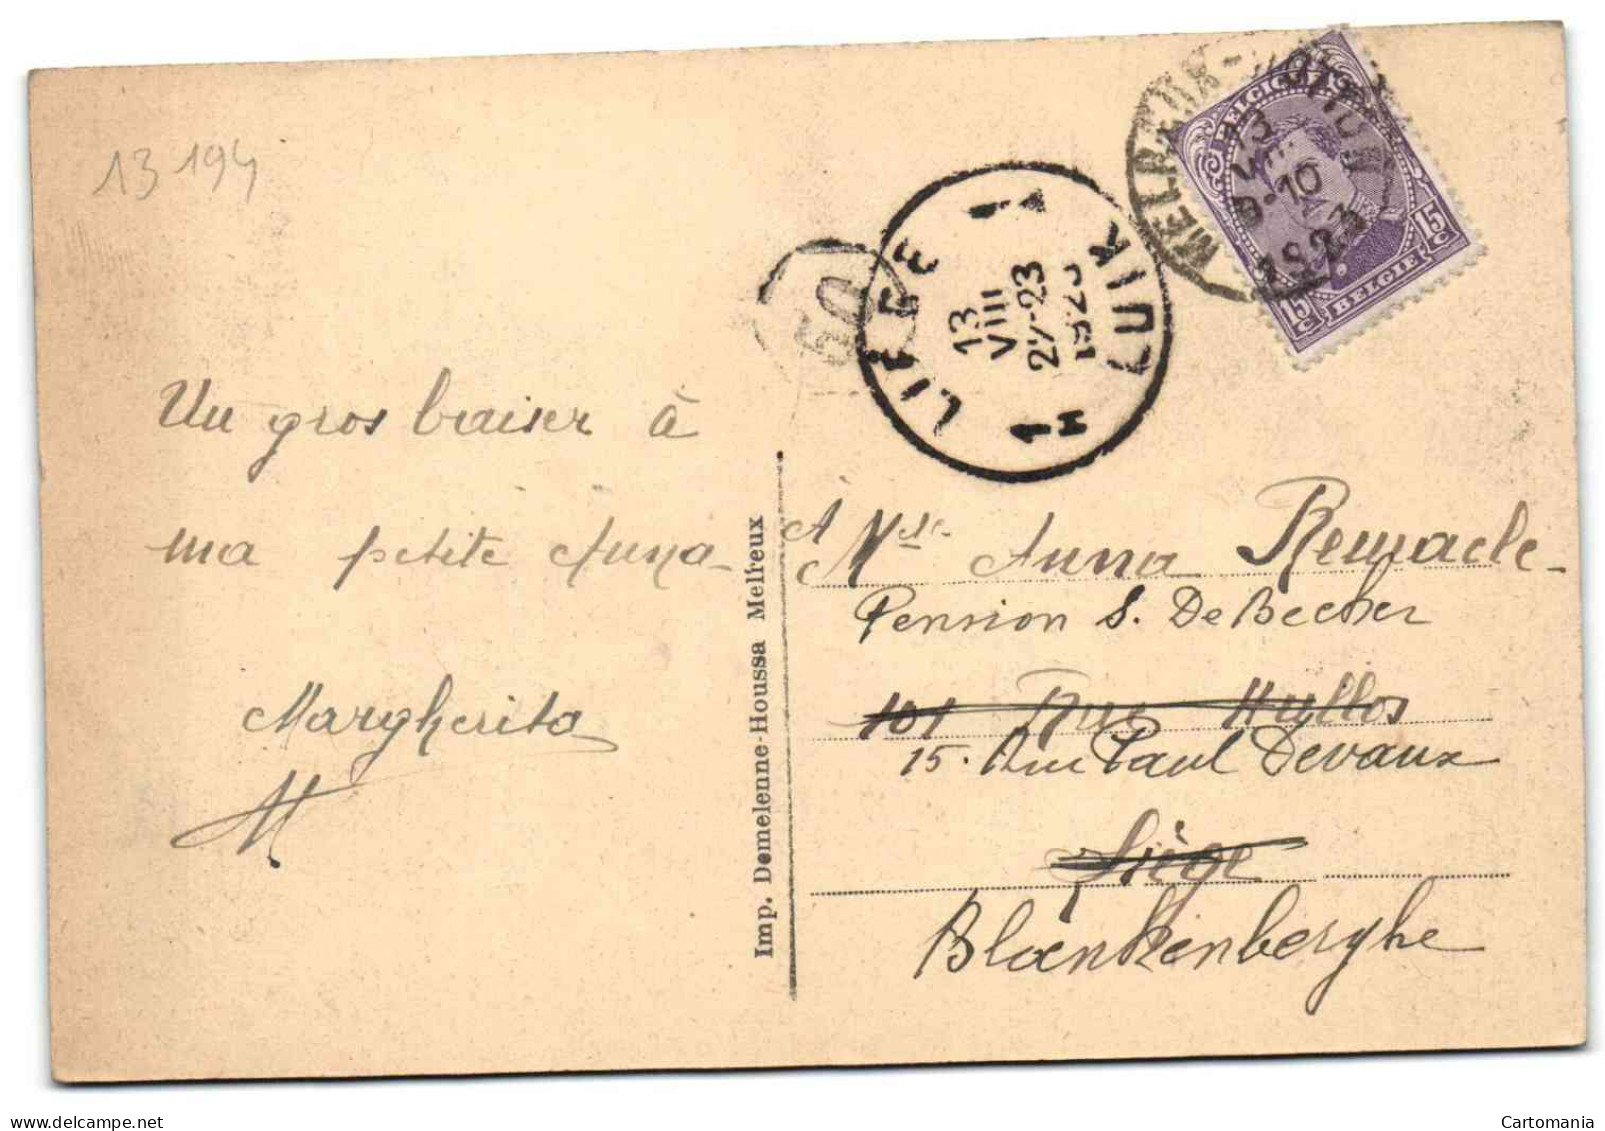 13 194
MELREUX-HOTTON
13 VIII
9-10
1923
BELGIQUE
15c
15c
BELGIË
60
LIÈGE 1
13
VIII
22-23
1923
1 LUIK
H
Un gros baiser à
ma petite Anna
Margherita
M
Imp. Demelenne-Houssa Melreux
À Mlle Anna Remacle
Pension S. De Becker
101 Rue Hyllos
15. Rue Paul Devaux
Liège
Blankenberghe
Cartomania